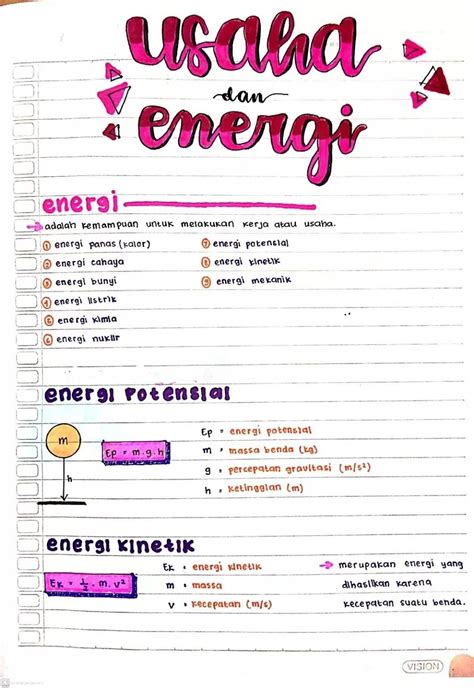 usaha
dan
energi
energi
adalah kemampuan untuk melakukan kerja atau usaha.
1 energi panas (kalor)
2 energi cahaya
3 energi bunyi
4 energi listrik
5 energi kimia
6 energi nuklir
7 energi potensial
8 energi kinetik
9 energi mekanik
energi potensial
m
h
Ep = m.g.h
Ep = energi potensial
m = massa benda (kg)
g = percepatan gravitasi (m/s²)
h = ketinggian (m)
energi kinetik
Ek = 1/2 . m. v²
Ek = energi kinetik
m = massa
v = kecepatan (m/s)
merupakan energi yang
dihasilkan karena
kecepatan suatu benda.
VISION